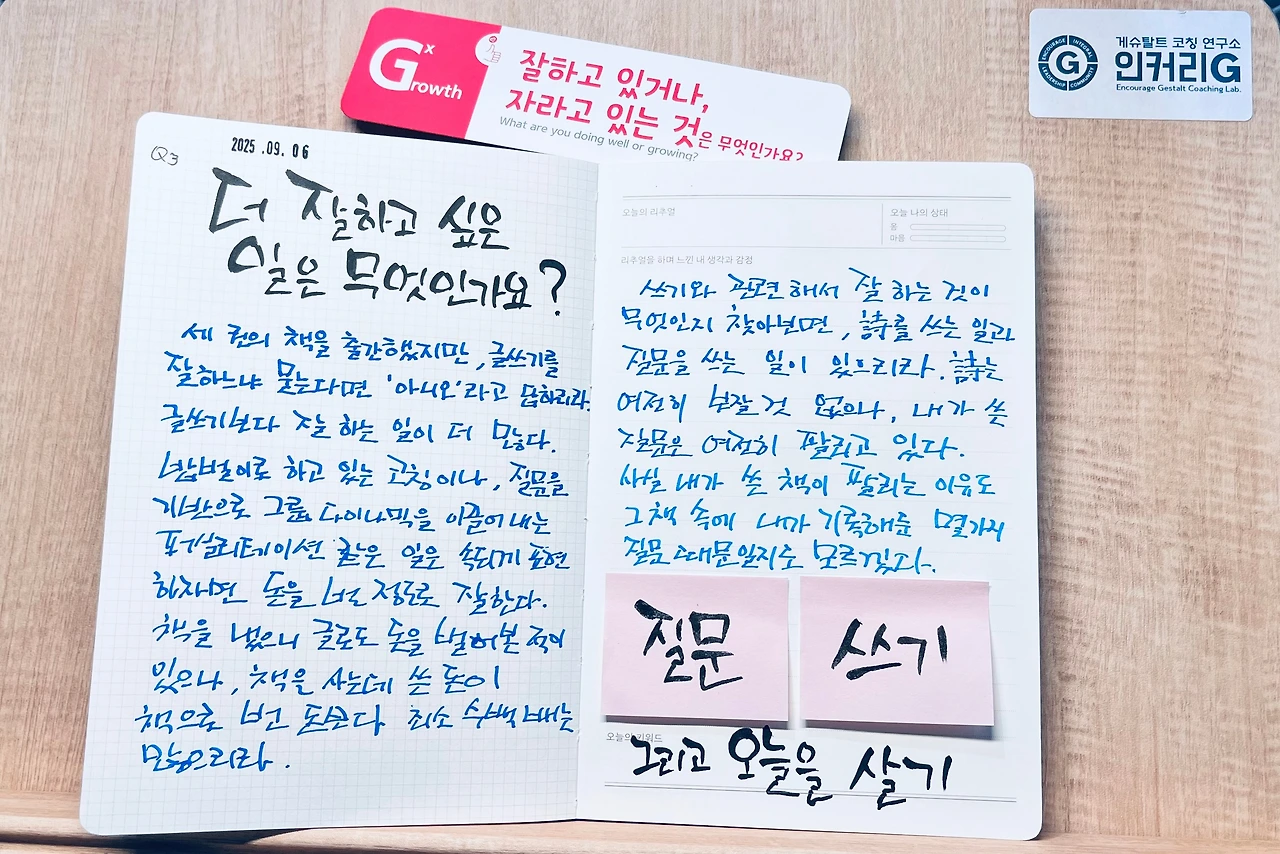 Growth x
잘하고 있거나,
자라고 있는 것은 무엇인가요?
What are you doing well or growing?
ENCOURAGE INTEGRAL COMMUNITY LEADERSHIP
G
게슈탈트 코칭 연구소
인커리G
Encourage Gestalt Coaching Lab.
Q3
2025.09.06
더 잘하고 싶은
일은 무엇인가요?
세 권의 책을 출간했지만, 글쓰기를
잘하느냐 묻는다면 '아니오'라고 답하리라.
글쓰기보다 잘 하는 일이 더 많다.
밥벌이로 하고 있는 코칭이나, 질문을
기반으로 그룹 다이나믹을 이끌어내는
퍼실리테이션 같은 일은 속되게 표현
하자면 돈을 버는 정도로 잘한다.
책을 냈으니 글로도 돈을 벌어본 적이
있으나, 책을 사는데 쓴 돈이
책으로 번 돈보다 최소 수백 배는
많으리라.
오늘의 리추얼
오늘 나의 상태
몸
마음
리추얼을 하며 느낀 내 생각과 감정
쓰기와 관련해서 잘 하는 것이
무엇인지 찾아보면, 詩를 쓰는 일과
질문을 쓰는 일이 있으리라. 詩는
여전히 보잘 것 없으나, 내가 쓴
질문은 여전히 팔리고 있다.
사실 내가 쓴 책이 팔리는 이유도
그 책 속에 내가 기록해둔 몇가지
질문 때문일지도 모르겠다.
질문
쓰기
오늘의 키워드
그리고 오늘을 살기